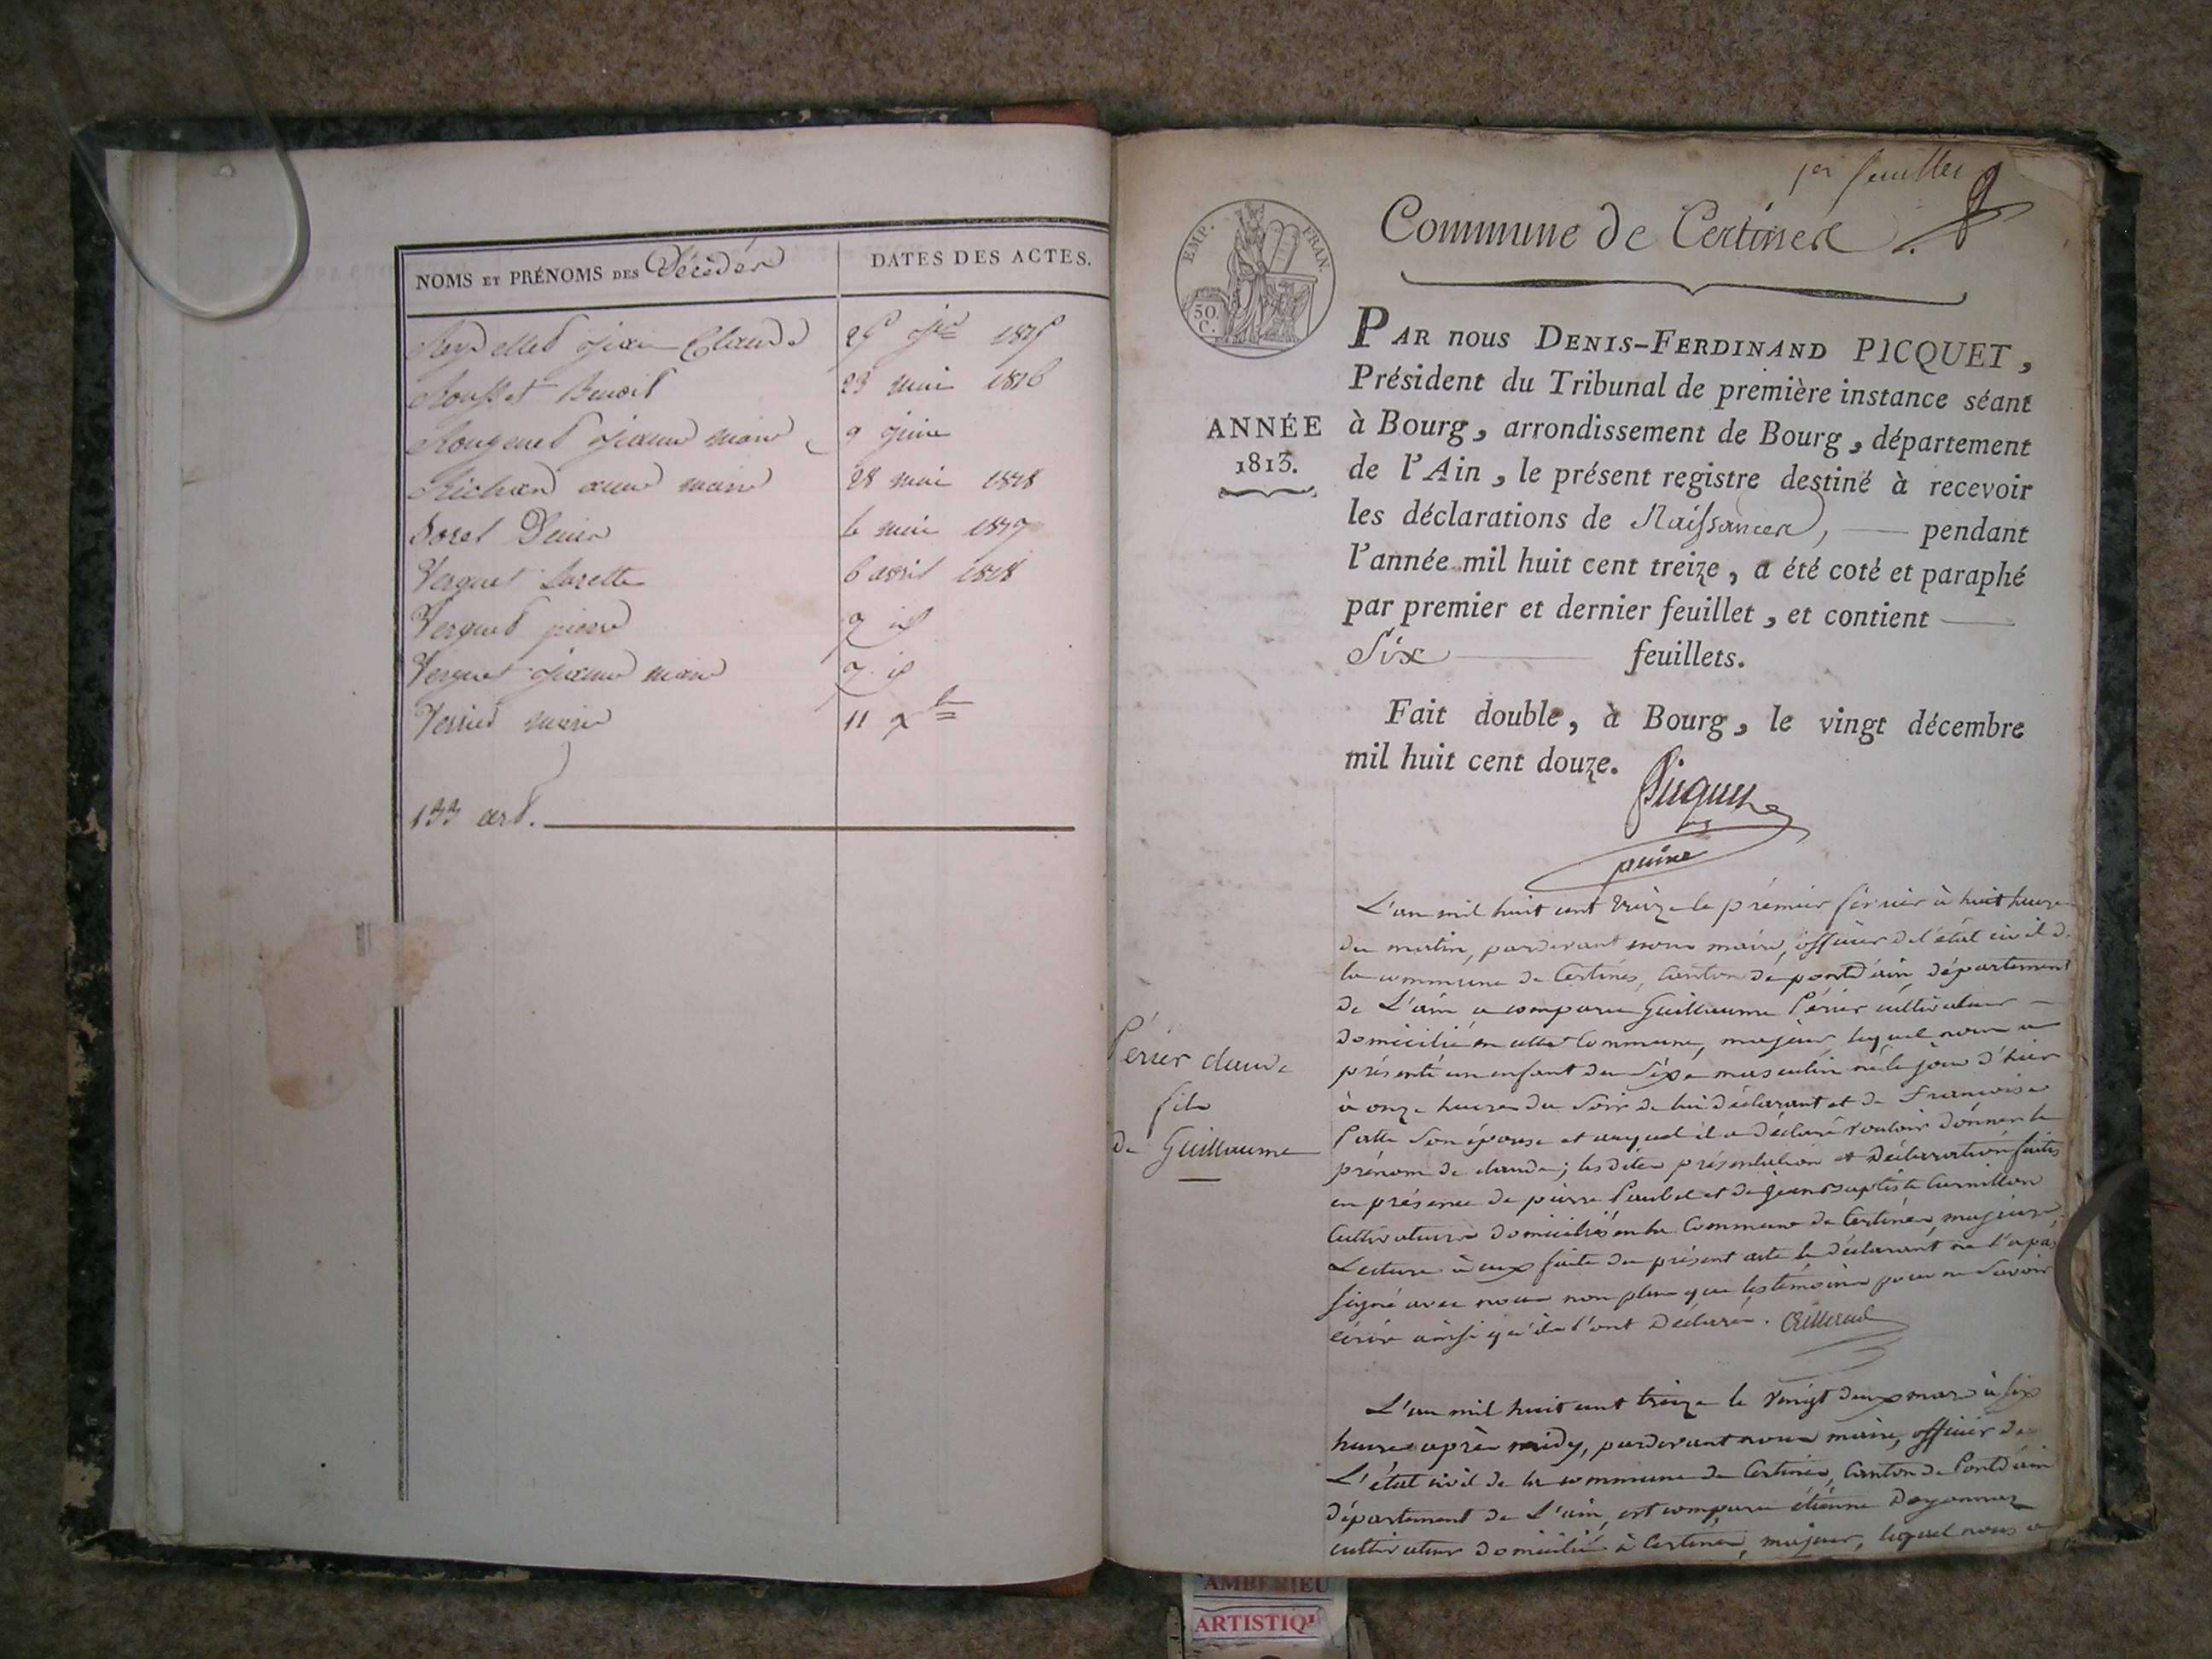 NOMS ET PRÉNOMS DES Décédés
DATES DES ACTES.
Jean Claude
Rousset Benoit 23 mai 1816
Jeanne marie 9 juin
Richard anne marie 28 mai 1818
Sorel Denis mai
Verguet Lurette 6 avril 1818
Verguet pierre 7 id
Verguet jeanne marie 7 id
marie 11 xbre
133 art.
1er feuillet
Commune de Certines.
EMP. FRAN.
50. C.
ANNÉE
1813.
PAR nous DENIS-FERDINAND PICQUET,
Président du Tribunal de première instance séant
à Bourg, arrondissement de Bourg, département
de l'Ain, le présent registre destiné à recevoir
les déclarations de Naissances, pendant
l'année mil huit cent treize, a été coté et paraphé
par premier et dernier feuillet, et contient
Six feuillets.
Fait double, à Bourg, le vingt décembre
mil huit cent douze.
Picquet
Périer claude
fils
de Guillaume
L'an mil huit cent treize le prémier février à huit heures
du matin, pardevant nous maire, officier de l'état civil de
la commune de Certines, canton de pontd'ain, département
de L'ain a comparu Guillaume Périer cultivateur
domicilié en cette Commune, majeur lequel nous a
présenté un enfant du séxe masculin né le jour d'hier
à onze heures du soir de lui déclarant et de Francoise
Patte son épouse et auquel il a déclaré vouloir donner le
prénom de claude; les dites présentation et déclaration faites
en présence de pierre et de jean Baptiste
Cultivateurs domiciliés en la Commune de Certines, majeurs,
Lecture à eux faite du présent acte le déclarant ne l'a pas
signé avec nous non plus que les témoins pour ne savoir
écrire ainsi qu'ils l'ont déclaré.
L'an mil huit cent treize le vingt deux mars à six
heures après midy, pardevant nous maire, officier de
L'état civil de la commune de Certines, Canton de Pontd'ain
département de L'ain, est comparu étienne
cultivateur domicilié à Certines, majeur, lequel nous a
AMBERIEU
ARTISTIQU